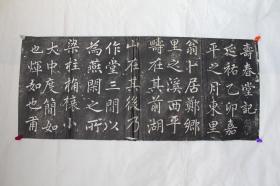 壽春堂記
延祐乙卯嘉
平之月東里
翁卜居鄭鄉
里之溪西平
疇在其前湖
山在其後乃
作堂三間以
為燕閒之所
梁柱桷欀小
大中度簡如
也煇如也甫